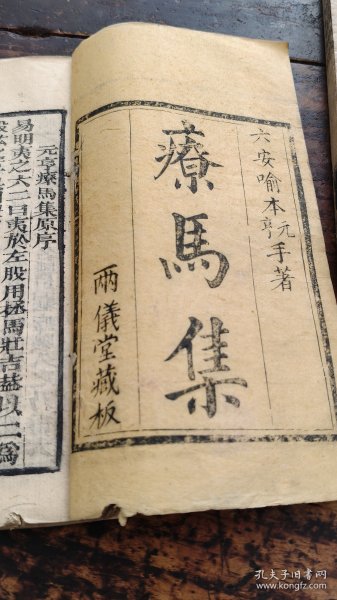 六安喻本元亨手著
療馬集
兩儀堂藏板
元亨療馬集原序
易明夷之六二曰夷於左股用拯馬壯吉蓋以二為
孔夫子旧书网